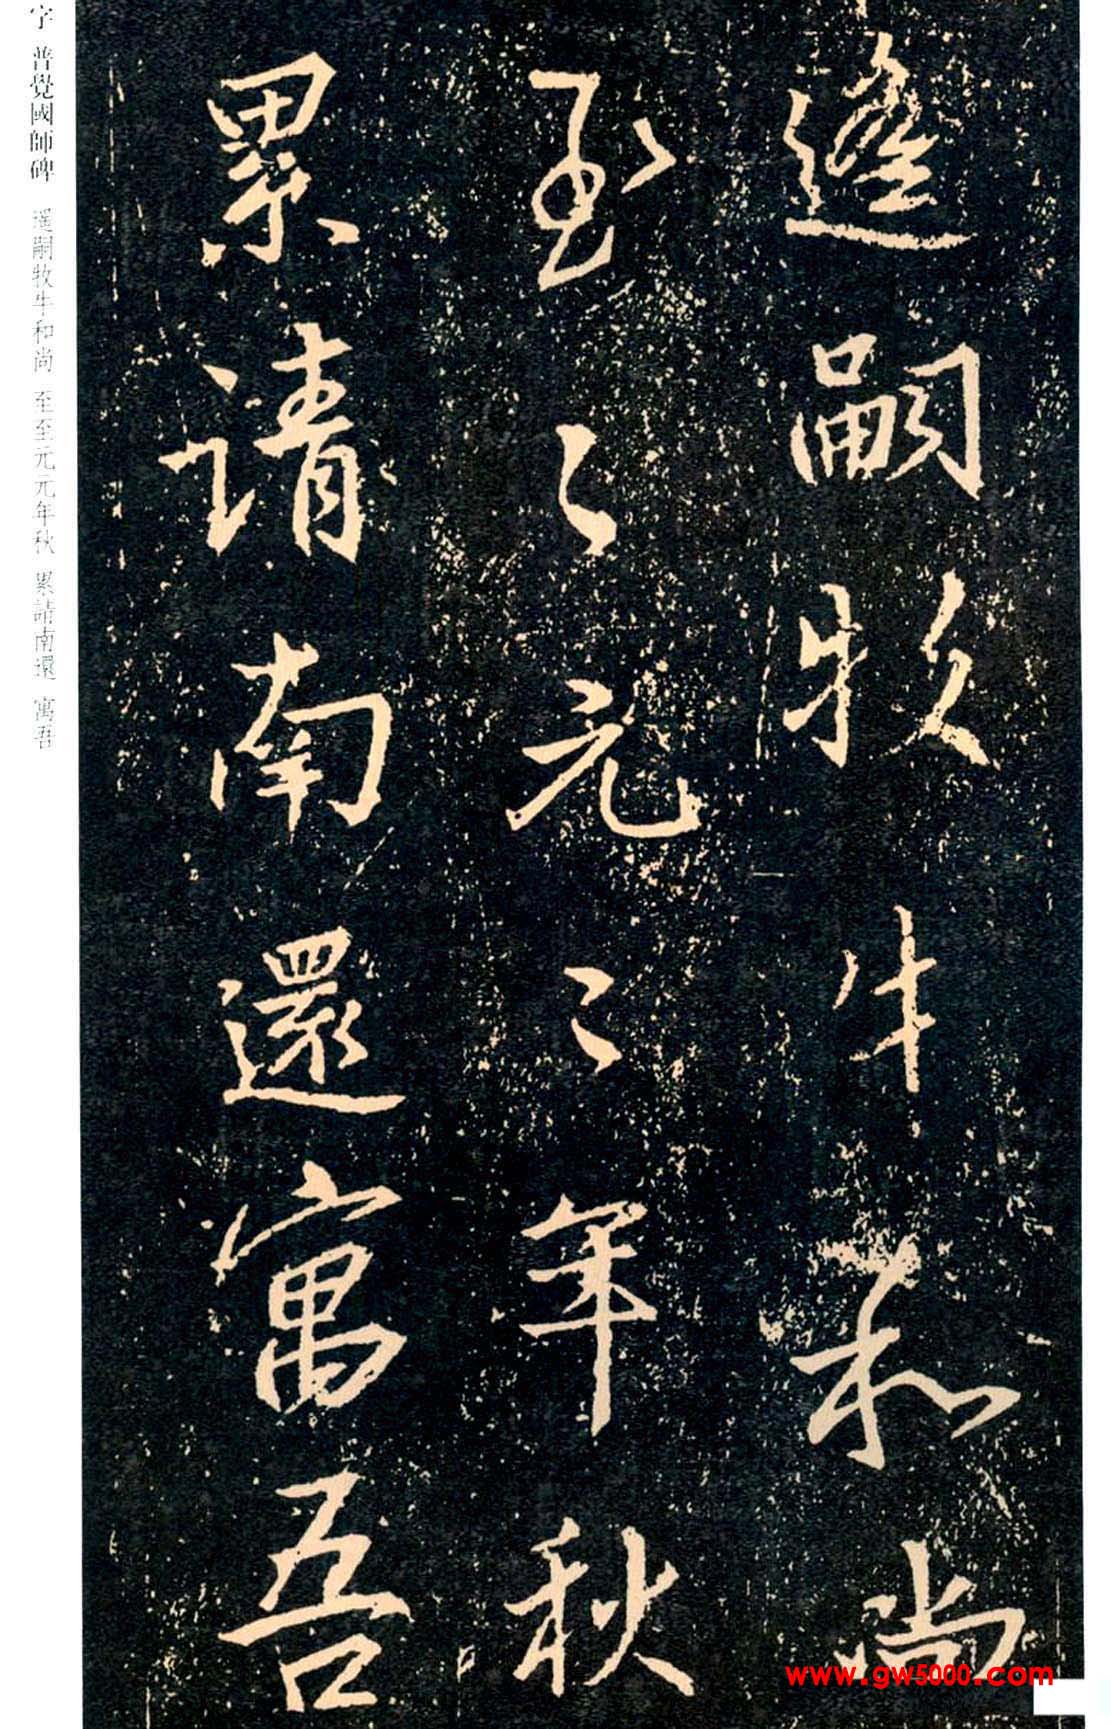 遙嗣牧牛和尚
至〻元〻年秋
累請南還寓吾
字 普覺國師碑 遥嗣牧牛和尚 至至元元年秋 累請南還 寓吾
www.gw5000.com